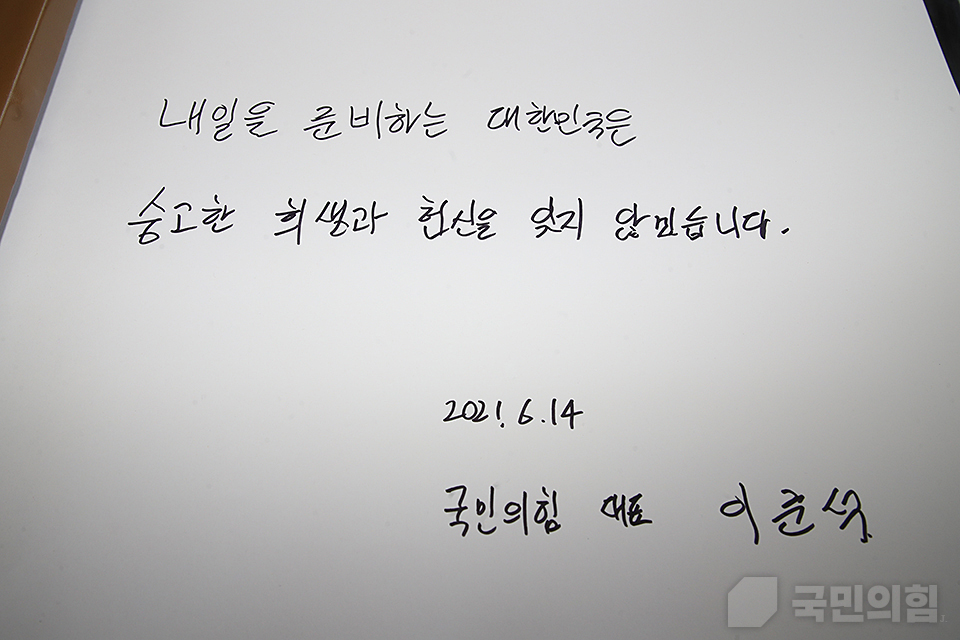 내일을 준비하는 대한민국은
숭고한 희생과 헌신을 잊지 않고 있습니다.
2021. 6. 14
국민의힘 대표 이준석
국민의힘